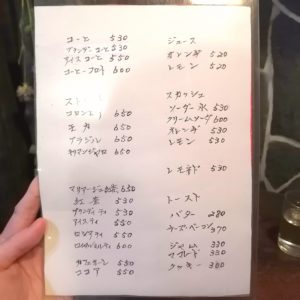 コーヒ 530
ブランデーコーヒ 530
アイスコーヒ 550
コーヒーフロート 600
ストレート
コロンビア 650
モカ 650
ブラジル 650
キリマンジャロ 650
マリアージュ紅茶 650
紅茶 530
ブランディティ 530
アイスティ 550
ロシアティ 550
ロイヤルミルクティ 600
カフェオーレ 530
ココア 550
ジュース
オレンヂ 520
レモン 520
スカッシュ
ソーダー水 530
クリームソーダ 600
オレンヂ 530
レモン 530
レモネード 530
トースト
バター 280
チーズベーコン 370
ジャム 330
マーマレード 330
クッキー 300